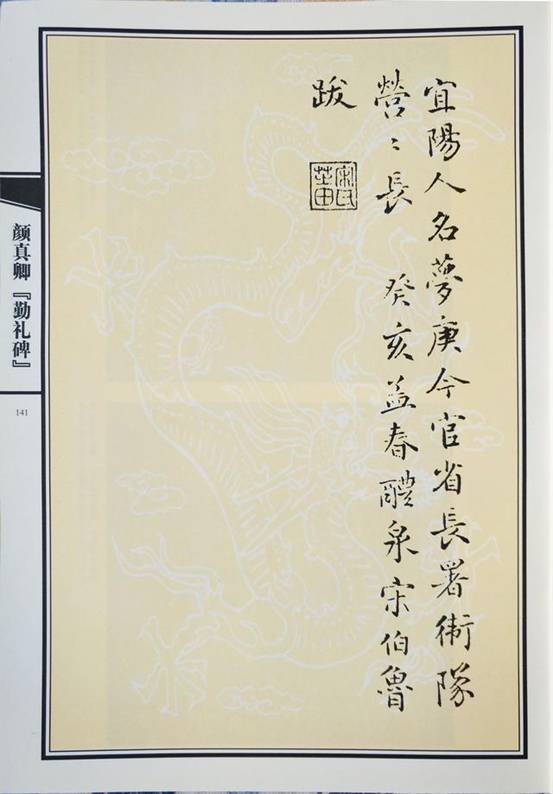 宜陽人名夢庚今官省長署衛隊
營〻長　癸亥孟春醴泉宋伯魯
跋
宋氏芝田
颜真卿『勤礼碑』
141